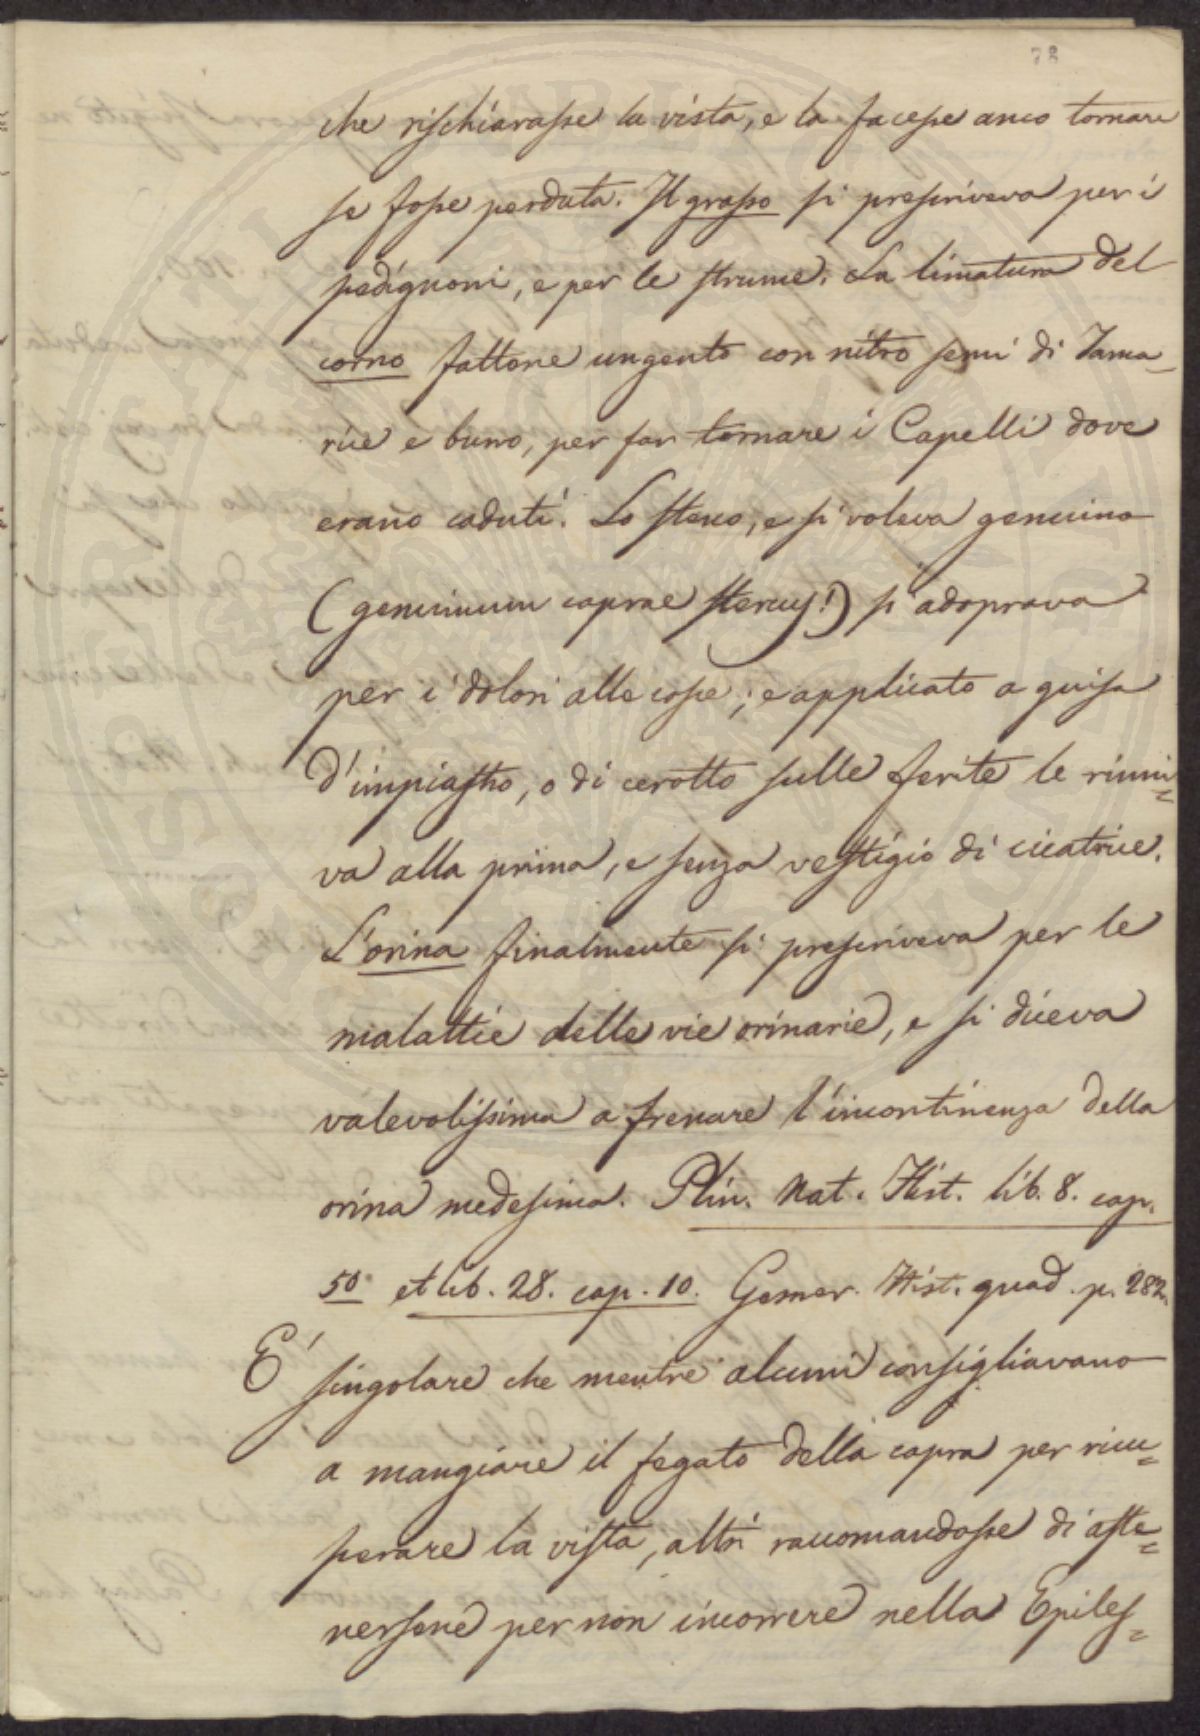 78
che rischiarasse la vista, e la facesse anco tornare
se fosse perduta. Il grasso si prescriveva per i
pedignoni, e per le strume. La limatura del
corno fattone ungento con nitro semi di Tama-
rice e burro, per far tornare i Capelli dove
erano caduti. Lo sterco, e si voleva genuino
(genuinum caprae stercus!) si adoprava
per i dolori alle cosse; e applicato a guisa
d'impiastro, o di cerotto sulle ferite le riuni=
va alla prima, e senza vestigio di cicatrice.
L'orina finalmente si prescriveva per le
malattie delle vie orinarie, e si diceva
valevolissima a frenare l'incontinenza della
orina medesima. Plin. Nat. Hist. lib. 8. cap.
50 et lib. 28. cap. 10. Gesner. Hist. quad. p. 282.
E' singolare che mentre alcuni consigliavano
a mangiare il fegato della capra per ricu=
perare la vista, altri raccomandasse di aste=
nersene per non incorrere nella Epiles=